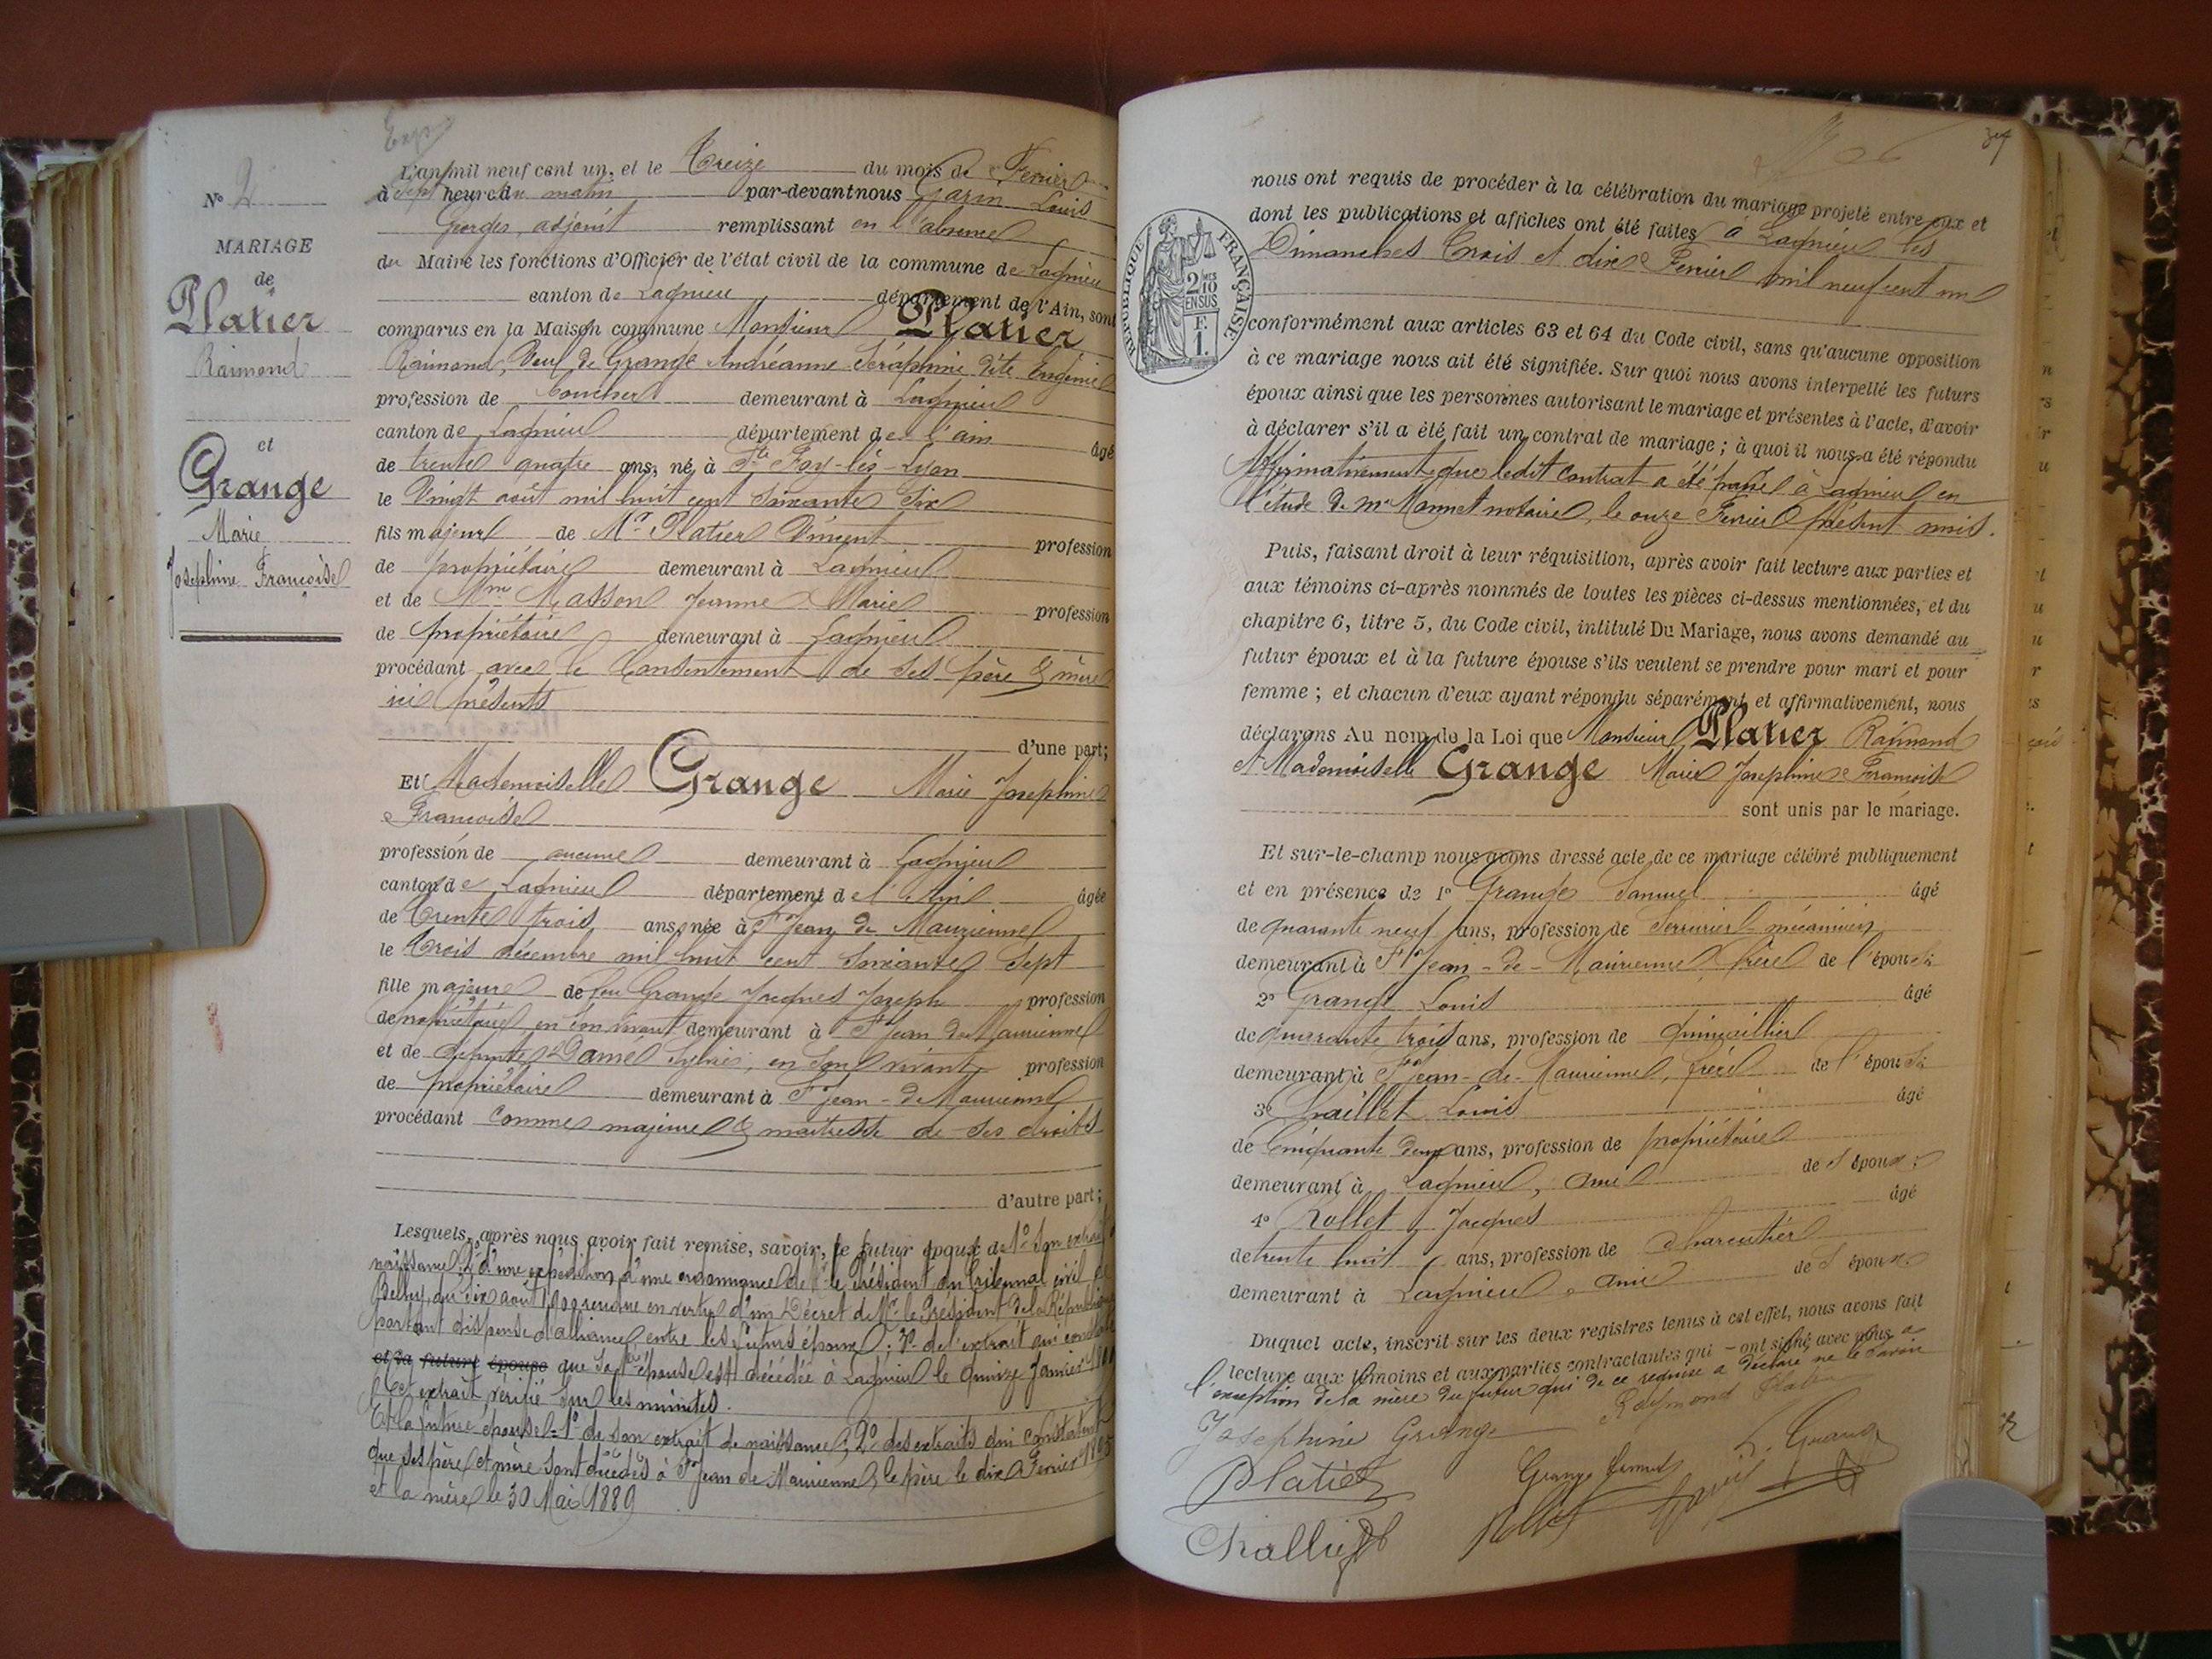 N° 2
MARIAGE
de
Platier
Raimond
et
Grange
Marie
Joséphine Françoise
L'an mil neuf cent un, et le Treize du mois de Février
à sept heure du matin par-devant nous Garin Louis
Georges, adjoint remplissant en l'absence
du Maire les fonctions d'Officier de l'état civil de la commune de Lagnieu
canton de Lagnieu département de l'Ain, sont
comparus en la Maison commune Monsieur Platier
Raimond, Veuf de Grange Andréanne Séraphine dite Eugénie
profession de boucher demeurant à Lagnieu
canton de Lagnieu département de l'ain âgé
de trente quatre ans, né à Ste Foy-lès-Lyon
le Vingt août mil huit cent soixante six
fils majeur de Mr Platier Vincent profession
de propriétaire demeurant à Lagnieu
et de Mme Masson Jeanne Marie profession
de propriétaire demeurant à Lagnieu
procédant avec le Consentement de ses père & mère
ici présents
d'une part;
Et Mademoiselle Grange Marie Joséphine
Françoise
profession de aucune demeurant à Lagnieu
canton de Lagnieu département de l'Ain âgée
de Trente trois ans, née à St Jean de Maurienne
le Trois décembre mil huit cent soixante sept
fille majeure de feu Grange Jacques Joseph profession
de propriétaire en son vivant demeurant à St Jean de Maurienne
et de défunte Damé en son vivant profession
de propriétaire demeurant à St Jean-de Maurienne
procédant comme majeure & maîtresse de ses droits
d'autre part;
Lesquels, après nous avoir fait remise, savoir, le futur époux de 1° son extrait
naissance; 2° d'une expédition d'une ordonnance de Mr le Président du tribunal civil de
Belley, du dix août 1900 rendue en vertu d'un Décret de Mr le Président de la République
portant dispense d'alliance entre les futurs époux; 3° de l'extrait qui constate
et la future épouse que sa 1ère épouse est décédée à Lagnieu le quinze Janvier
Cet extrait vérifié sur les minutes.
Et la future épouse = 1° de son extrait de naissance; 2° des extraits qui constatent
que ses père et mère sont décédés à St Jean de Maurienne, le père le dix Février
et la mère le 30 Mai 1889
37
nous ont requis de procéder à la célébration du mariage projeté entre eux et
dont les publications et affiches ont été faites à Lagnieu les
Dimanches Trois et dix Février mil neuf cent un
RÉPUBLIQUE FRANÇAISE
2/10
EN SUS
F.
1.
conformément aux articles 63 et 64 du Code civil, sans qu'aucune opposition
à ce mariage nous ait été signifiée. Sur quoi nous avons interpellé les futurs
époux ainsi que les personnes autorisant le mariage et présentes à l'acte, d'avoir
à déclarer s'il a été fait un contrat de mariage; à quoi il nous a été répondu
Affirmativement que ledit contrat a été passé à Lagnieu en
l'étude de Me Monnet notaire, le onze Février présent mois.
Puis, faisant droit à leur réquisition, après avoir fait lecture aux parties et
aux témoins ci-après nommés de toutes les pièces ci-dessus mentionnées, et du
chapitre 6, titre 5, du Code civil, intitulé Du Mariage, nous avons demandé au
futur époux et à la future épouse s'ils veulent se prendre pour mari et pour
femme; et chacun d'eux ayant répondu séparément et affirmativement, nous
déclarons Au nom de la Loi que Monsieur Platier Raimond
et Mademoiselle Grange Marie Joséphine Françoise
sont unis par le mariage.
Et sur-le-champ nous avons dressé acte de ce mariage célébré publiquement
et en présence de 1° Grange Samuel âgé
de quarante neuf ans, profession de Serrurier mécanicien
demeurant à St Jean-de-Maurienne frère de l'épouse
2° Grange Louis âgé
de quarante trois ans, profession de quincaillier
demeurant à St Jean-de-Maurienne, frère de l'épouse
3° Chaillet Louis âgé
de Cinquante deux ans, profession de propriétaire
demeurant à Lagnieu, ami de l'époux
4° Rollet Jacques âgé
de trente huit ans, profession de charcutier
demeurant à Lagnieu, ami de l'époux
Duquel acte, inscrit sur les deux registres tenus à cet effet, nous avons fait
lecture aux témoins et aux parties contractantes qui ont signé avec nous à
l'exception de la mère du futur qui de ce requise a déclaré ne le savoir
Joséphine Grange Raymond Platier
Platier Grange Samuel L. Grange
Rollet Garin